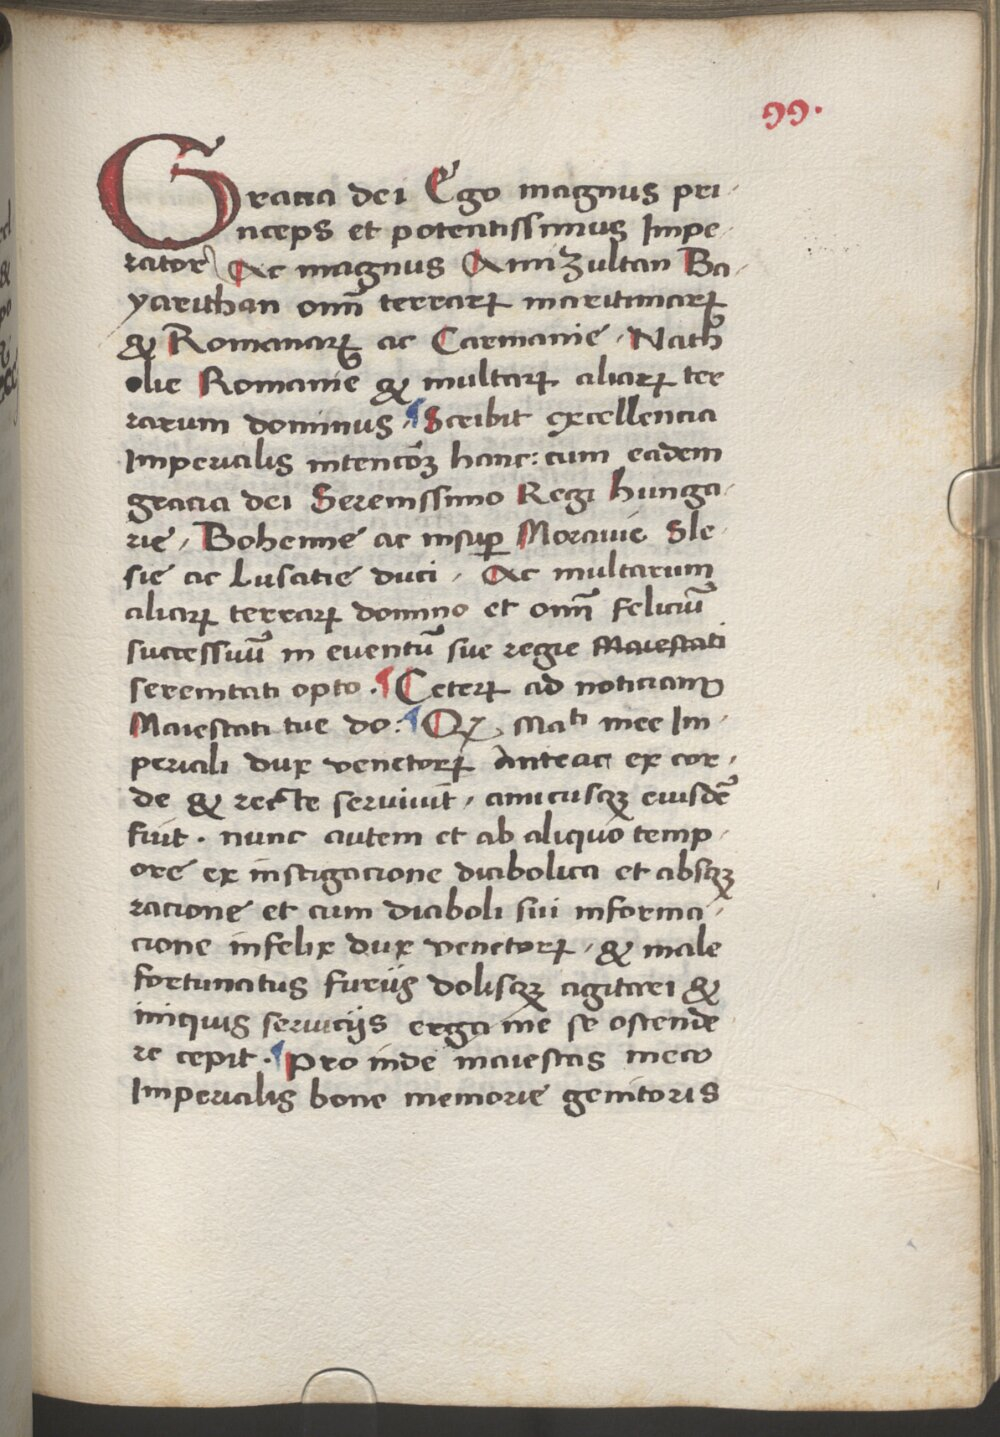 99.
Gracia dei Ego magnus pri
nceps et potentissimus Impe
rator Ac magnus Amizultan Ba
yarithan om̄ terraꝝ maritimaꝝ
& Romanaꝝ ac Carmanie Nath
olie Romanie & multaꝝ aliaꝝ ter
rarum dominus ¶ Scribit excellencia
Imperialis intencōꝫ hanc: cum eadem
gracia dei Serenissimo Regi hunga
rie, Bohemie ac insuꝑ Moravie Sle
sie ac Lusatie duci, Ac multarum
aliaꝝ terraꝝ domino et om̄ feliciū
successiuū in eventū sue regie Maiestati
serenitati opto. ¶ Ceteꝝ ad noticiam
Maiestati tue do: ¶ Qꝫ Maᵗⁱ mee Im
periali dux venetoꝝ Anteac ex cor
de & recte servivit, amicusqꝫ eiusdē
fuit. nunc autem et ab aliquo temp
ore ex instigacione diabolica et absqꝫ
racione et cum diaboli sui informa
cione infelix dux venetoꝝ, & male
fortunatus furiis dolisqꝫ agitari &
iniquis serviciis erga me se ostende
re cepit. ¶ Pro inde maiestas mea
Imperialis bone memorie genitoris